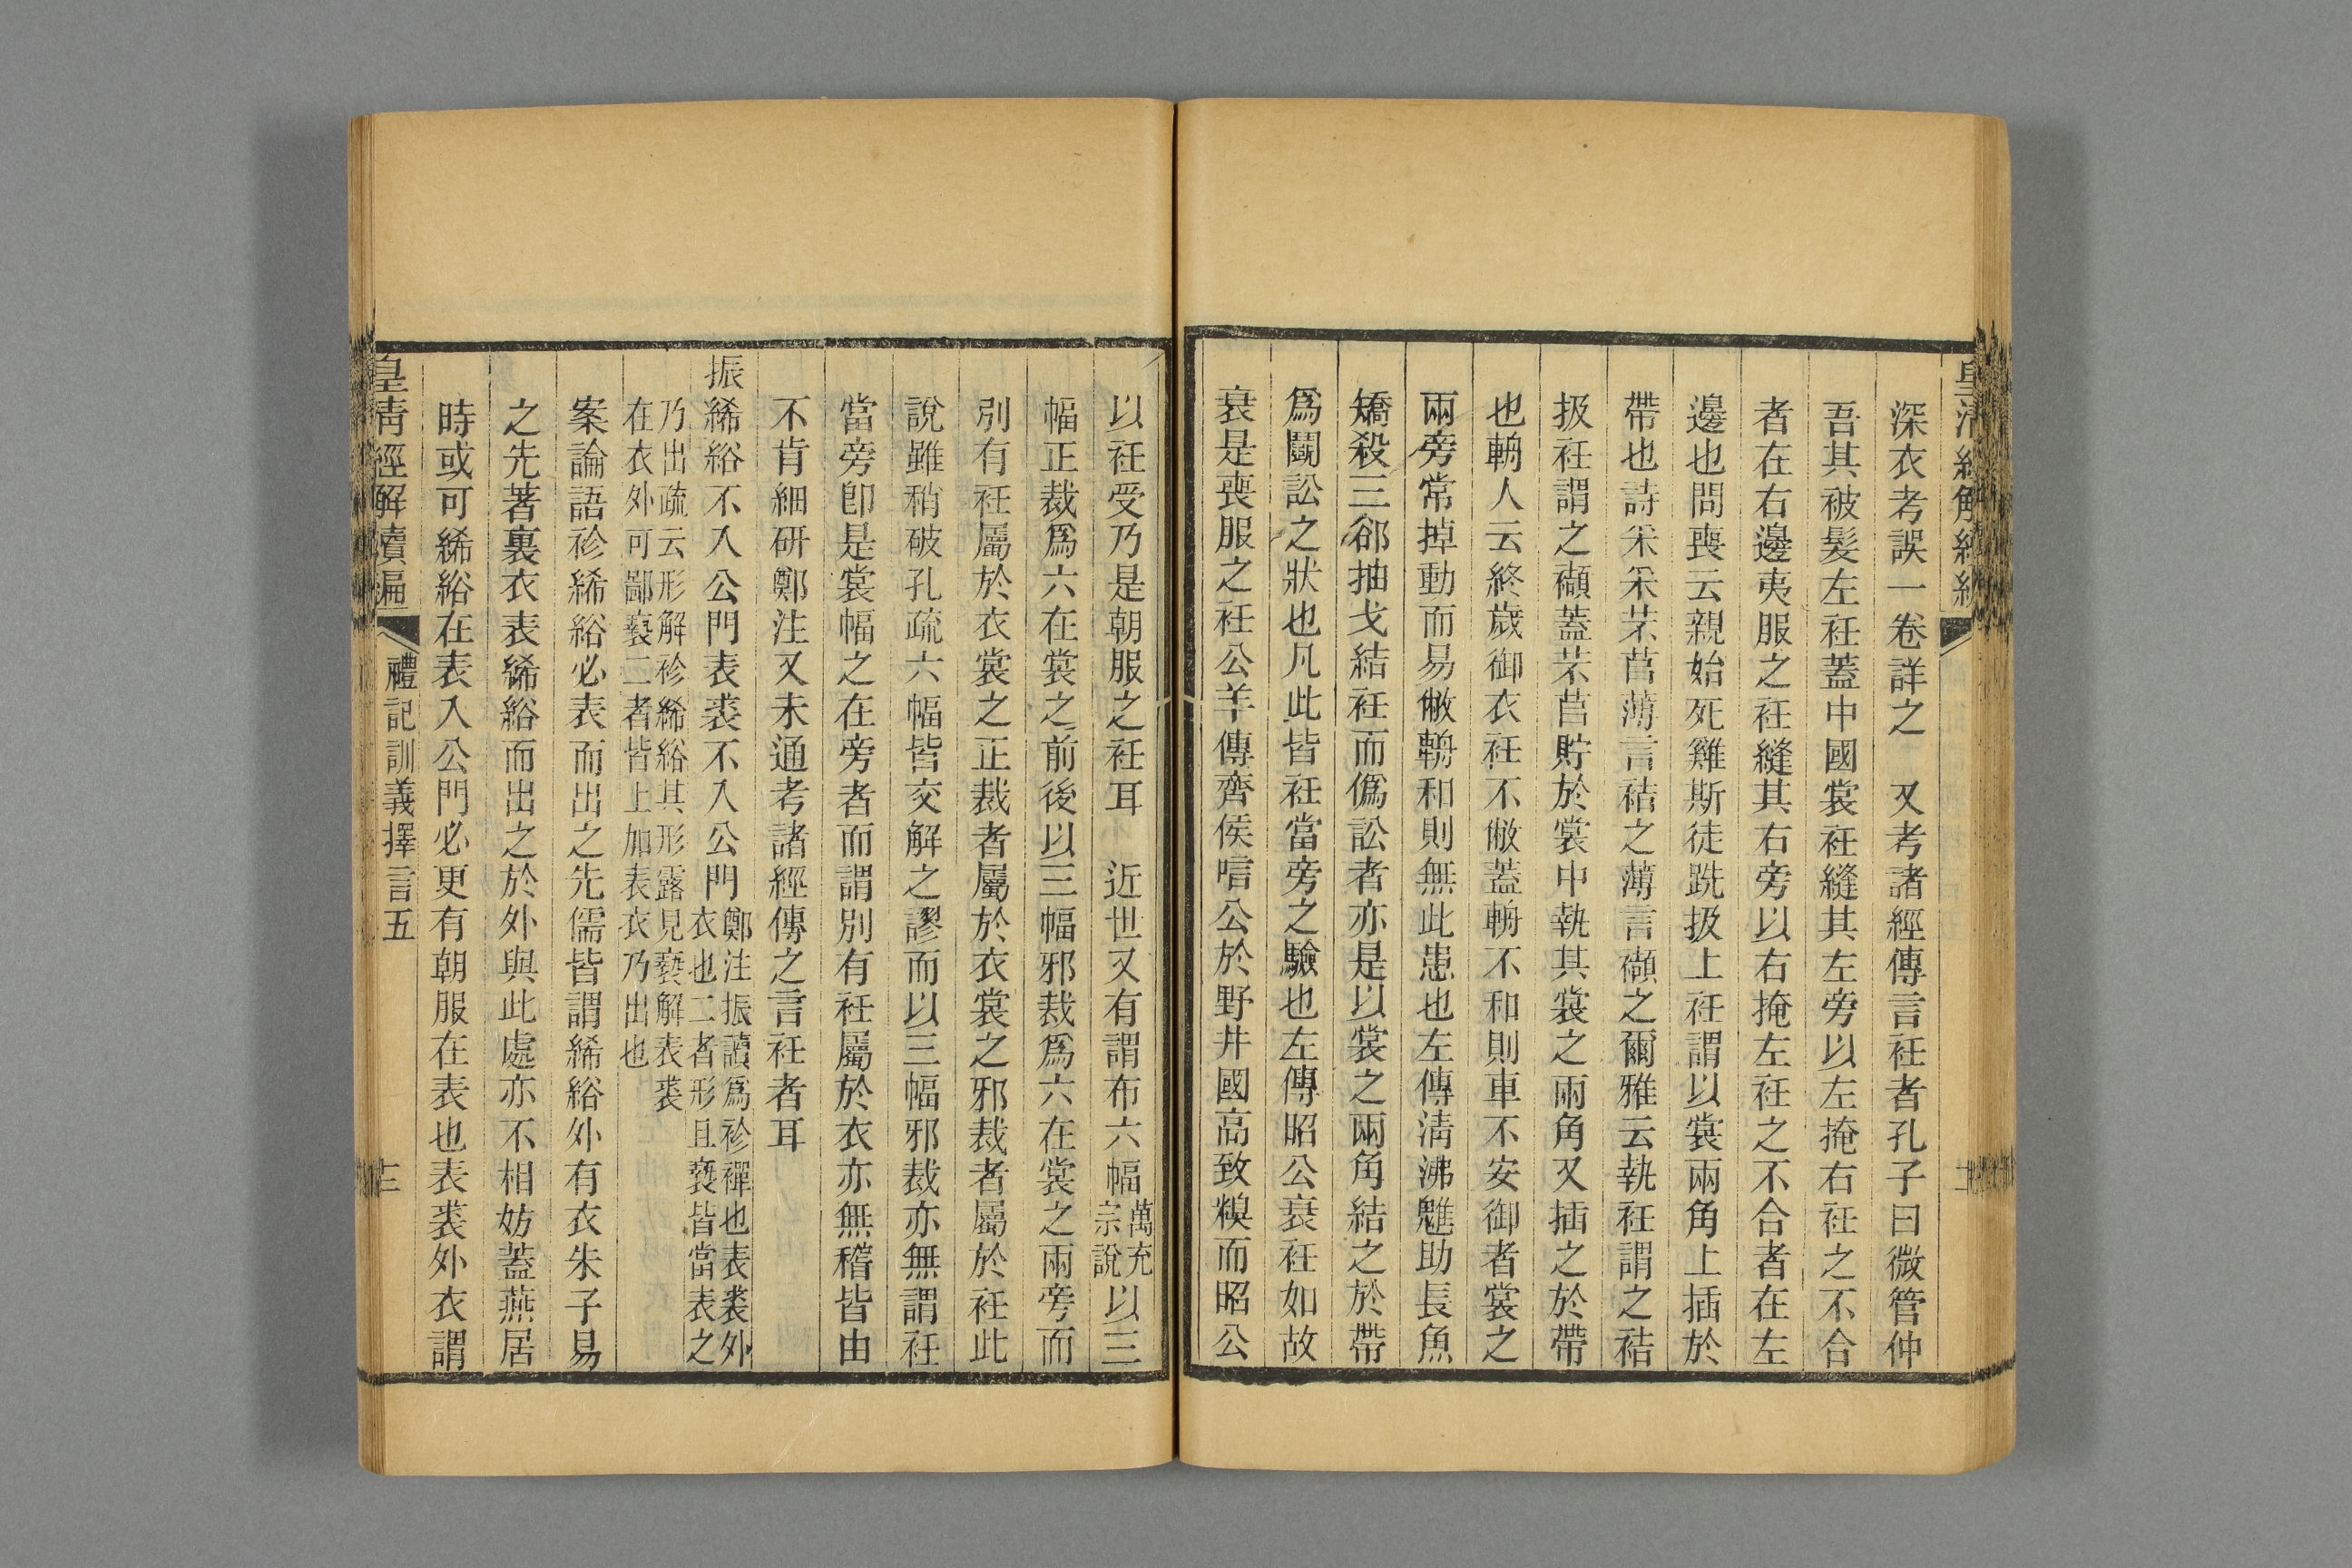 深衣考誤一卷詳之　又考諸經傳言衽者孔子曰微管仲
吾其被髮左衽蓋中國裳衽縫其左旁以左掩右衽之不合
者在右邊夷服之衽縫其右旁以右掩左衽之不合者在左
邊也問喪云親始死雞斯徒跣扱上衽謂以裳兩角上插於
帶也詩采采芣苢薄言袺之薄言襭之爾雅云執衽謂之袺
扱衽謂之襭蓋芣苢貯於裳中執其裳之兩角又插之於帶
也輈人云終歲御衣衽不敝蓋輈不和則車不安御者裳之
兩旁常掉動而易敝輈和則無此患也左傳清沸魋助長魚
矯殺三郤抽戈結衽而僞訟者亦是以裳之兩角結之於帶
爲鬭訟之狀也凡此皆衽當旁之驗也左傳昭公衰衽如故
衰是喪服之衽公羊傳齊侯唁公於野井國高致糗而昭公
以衽受乃是朝服之衽耳　近世又有謂布六幅萬充宗說以三
幅正裁爲六在裳之前後以三幅邪裁爲六在裳之兩旁而
別有衽屬於衣裳之正裁者屬於衣裳之邪裁者屬於衽此
說雖稍破孔疏六幅皆交解之謬而以三幅邪裁亦無謂衽
當旁卽是裳幅之在旁者而謂別有衽屬於衣亦無稽皆由
不肯細研鄭注又未通考諸經傳之言衽者耳
振絺綌不入公門表裘不入公門鄭注振讀爲袗襌也表裘外衣也二者形且褻皆當表之
乃出疏云形解袗絺綌其形露見褻解表裘
在衣外可鄙褻二者皆上加表衣乃出也
案論語袗絺綌必表而出之先儒皆謂絺綌外有衣朱子易
之先著裏衣表絺綌而出之於外與此處亦不相妨蓋燕居
時或可絺綌在表入公門必更有朝服在表也表裘外衣謂
皇清經解續編　禮記訓義擇言五